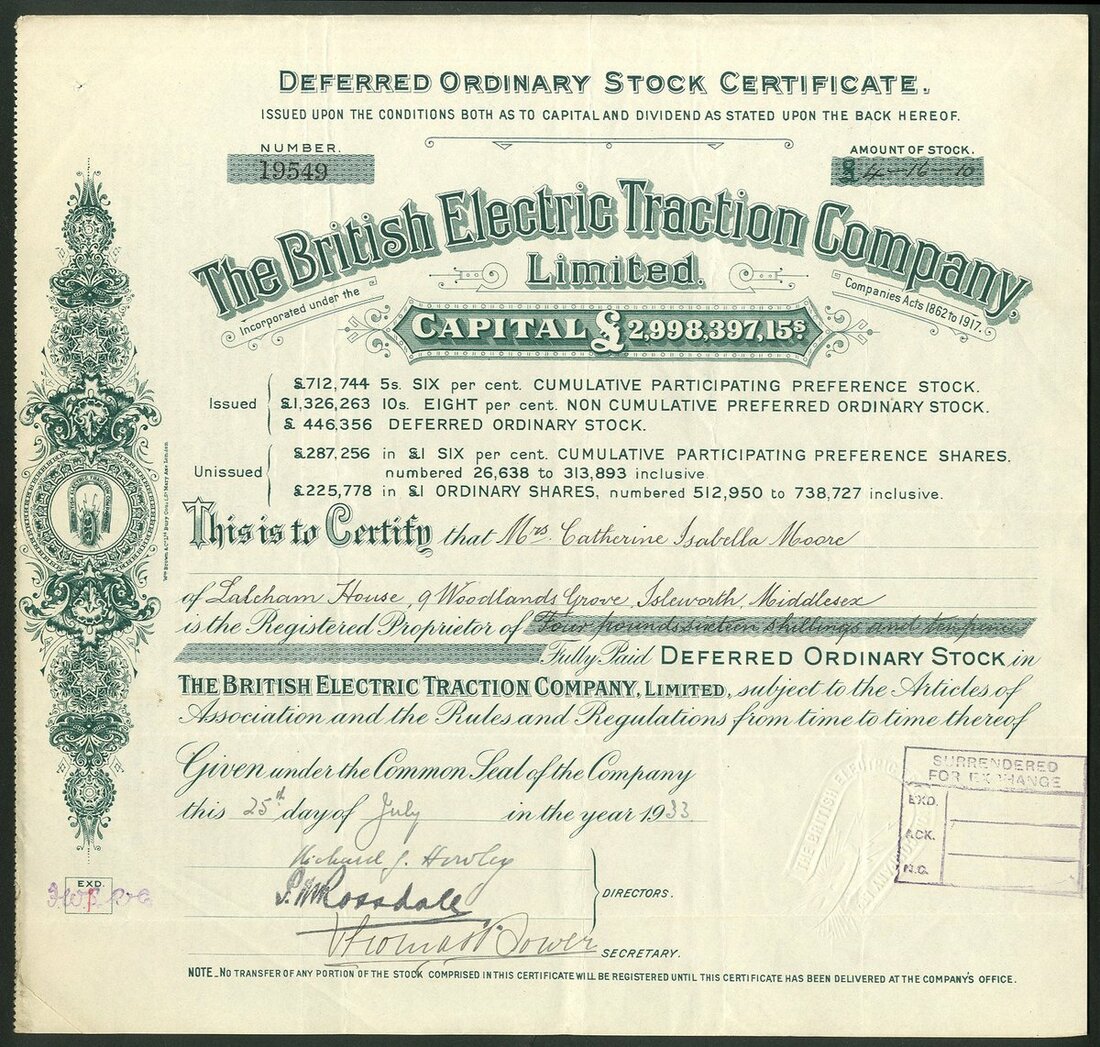 DEFERRED ORDINARY STOCK CERTIFICATE.
ISSUED UPON THE CONDITIONS BOTH AS TO CAPITAL AND DIVIDEND AS STATED UPON THE BACK HEREOF.
NUMBER.
19549
AMOUNT OF STOCK.
£ 4-16-10
The British Electric Traction Company,
Limited.
Incorporated under the
Companies Acts 1862 to 1917.
CAPITAL £ 2,998,397,15s.
Issued
£712,744 5s. SIX per cent. CUMULATIVE PARTICIPATING PREFERENCE STOCK.
£1,326,263 10s. EIGHT per cent. NON CUMULATIVE PREFERRED ORDINARY STOCK.
£ 446,356 DEFERRED ORDINARY STOCK.
Unissued
£287,256 in £1 SIX per cent. CUMULATIVE PARTICIPATING PREFERENCE SHARES,
numbered 26,638 to 313,893 inclusive.
£225,778 in £1 ORDINARY SHARES, numbered 512,950 to 738,727 inclusive.
This is to Certify that Mrs. Catherine Isabella Moore
of Laleham House, 9 Woodlands Grove, Isleworth, Middlesex
is the Registered Proprietor of Four pounds sixteen shillings and ten pence
Fully Paid DEFERRED ORDINARY STOCK in
THE BRITISH ELECTRIC TRACTION COMPANY, LIMITED, subject to the Articles of
Association and the Rules and Regulations from time to time thereof
Given under the Common Seal of the Company
this 25th day of July in the year 1933
Richard J. Howley
Rossdale
DIRECTORS.
SECRETARY.
SURRENDERED
FOR EXCHANGE
EXD.
ACK.
N.C.
THE BRITISH ELECTRIC
EXD.
NOTE_NO TRANSFER OF ANY PORTION OF THE STOCK COMPRISED IN THIS CERTIFICATE WILL BE REGISTERED UNTIL THIS CERTIFICATE HAS BEEN DELIVERED AT THE COMPANY'S OFFICE.